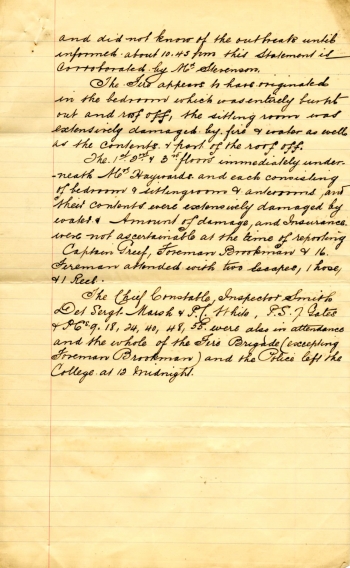 and did not know of the outbreak until
informed about 10.45 pm this Statement is
corroborated by Mr Stevenson.
The Fire appears to have originated
in the bedroom which was entirely burnt
out and roof off, the sitting room was
extensively damaged by fire & water as well
as the contents & part of the roof off.
The 1st 2nd & 3rd floors immediately under-
neath Mr Haywards and each consisting
of bedroom & sittingroom & anterooms, and
their contents were extensively damaged by
water & Amount of damage, and Insurance
were not ascertainable at the time of reporting
Captain Greef, Foreman Brookman & 16
Firemen attended with two Escapes, 1 hose,
& 1 Reel.
The Chief Constable, Inspector Smith
Det Sergt. Marsh & P.C White, P.S. 7
& P.Cs 9. 18, 24, 40, 48, 55. were also in attendance
and the whole of the Fire Brigade (excepting
Foreman Brookman) and the Police left the
College at 12 Midnight.